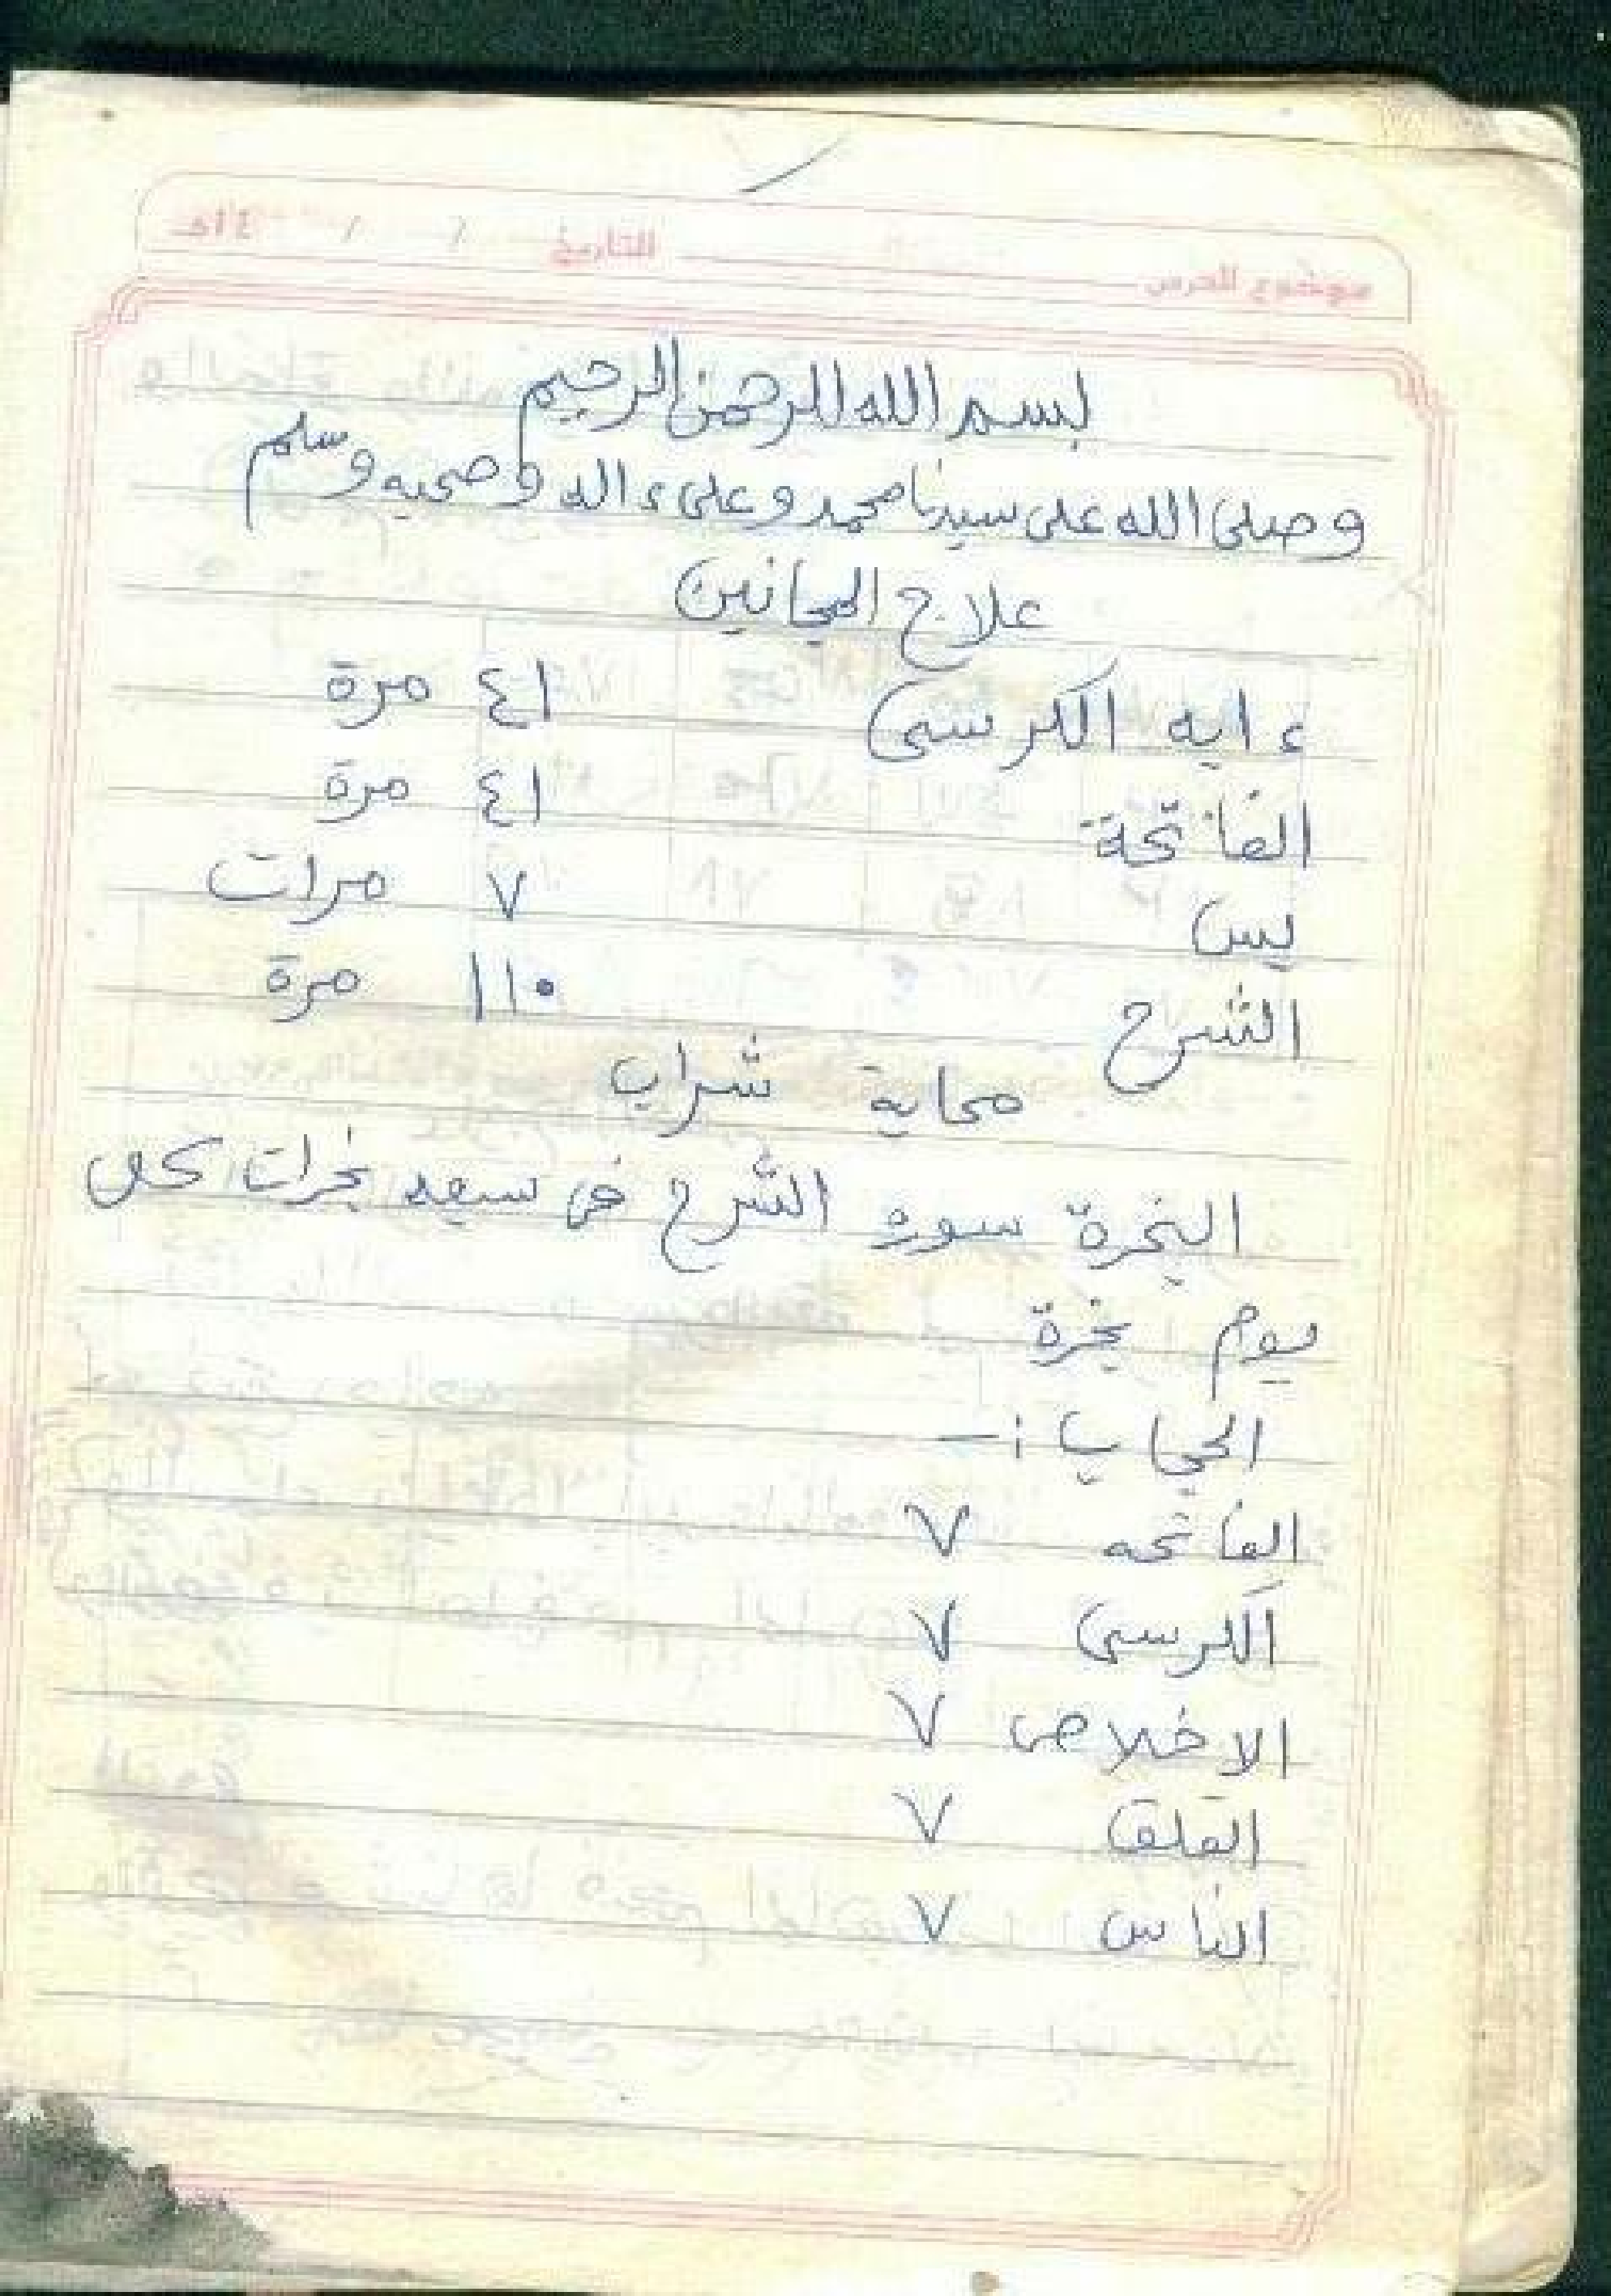 موضوع الدرس التاريخ / / ١٤هـ
بسم الله الرحمن الرحيم
وصلى الله على سيدنا محمد وعلى ءاله وصحبه وسلم
علاج المجانين
ءايه الكرسى ٤١ مرة
الفاتحة ٤١ مرة
يس ٧ مرات
الشرح ١١٠ مرة
محاية شراب
البخرة سوره الشرح فى سبعه بخرات كل
يوم بخرة
الحجاب :-
الفاتحه ٧
الكرسى ٧
الاخلاص ٧
الفلق ٧
الناس ٧